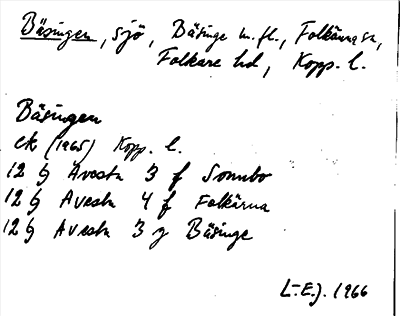 Bäsingen, sjö, Bäsinge m.fl., Folkärna sn,
Folkare hd, Kopp. l.
Bäsingen
ek (1965) Kopp. l.
12 G Avesta 3 f Sonnbo
12 G Avesta 4 f Folkärna
12 G Avesta 3 g Bäsinge
L-E.J. 1966